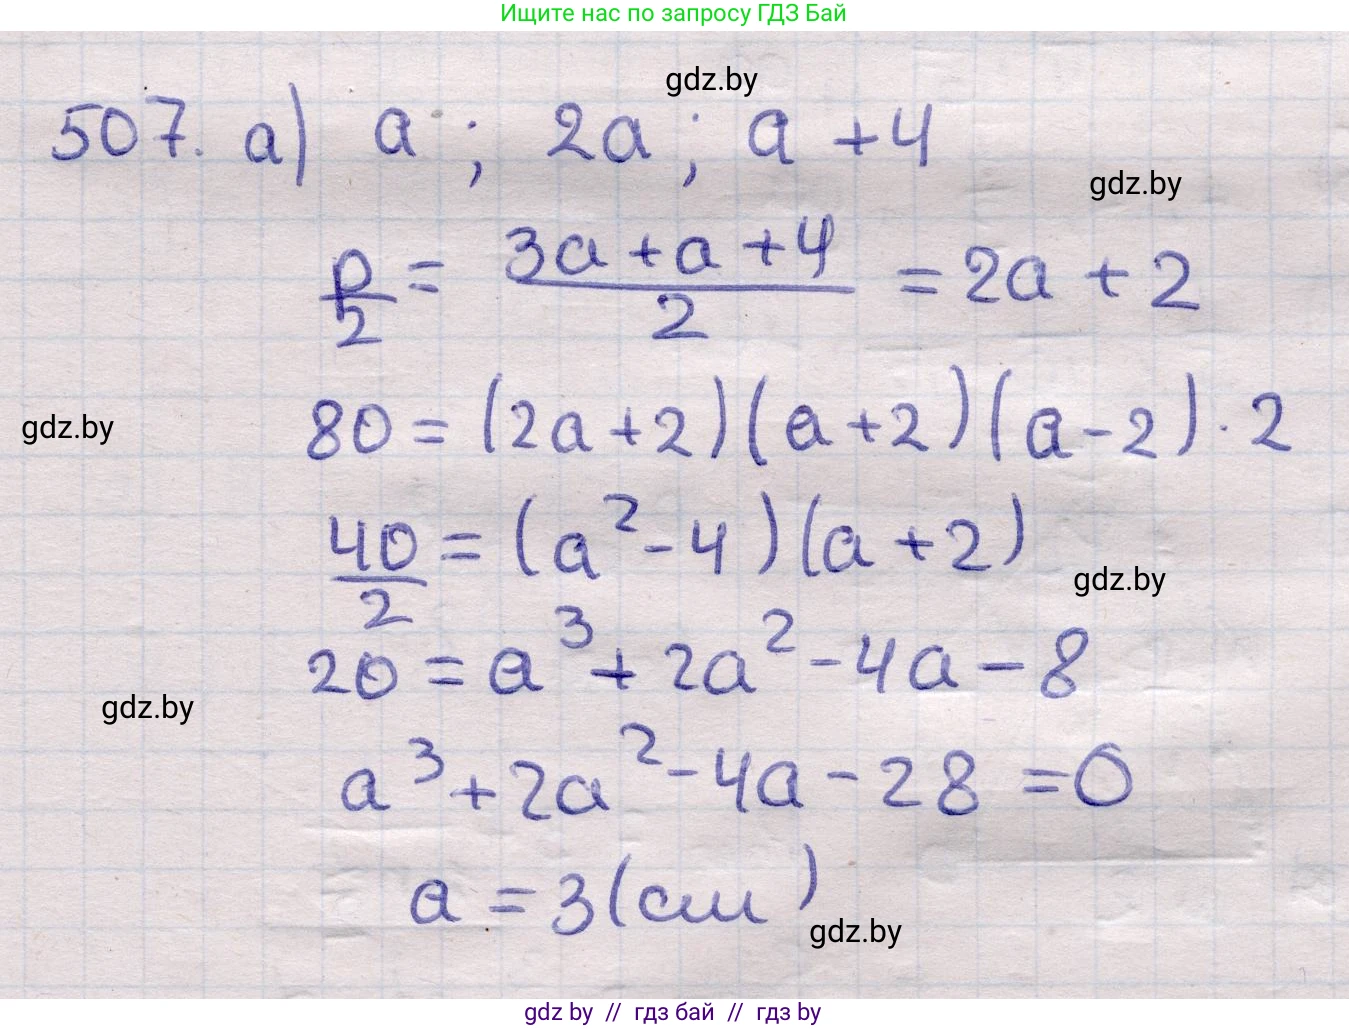 Ищите нас по запросу ГДЗ Бай
gdz.by
507. а) a ; 2a ; a + 4
gdz.by
p/2 = (3a + a + 4)/2 = 2a + 2
gdz.by
80 = (2a + 2)(a + 2)(a - 2) · 2
40/2 = (a² - 4)(a + 2)
gdz.by
20 = a³ + 2a² - 4a - 8
gdz.by
a³ + 2a² - 4a - 28 = 0
a = 3 (см)
gdz.by
gdz by // гдз бай // гдз by